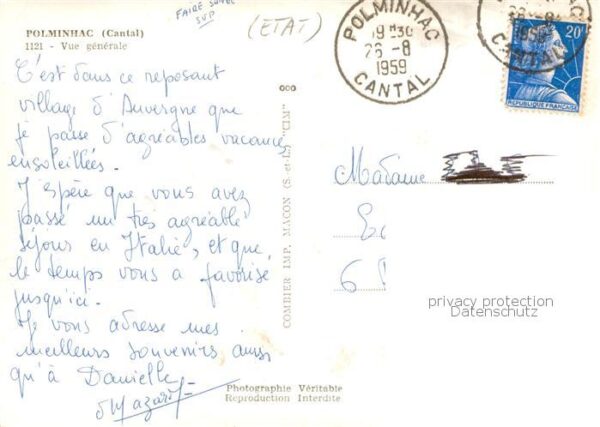 POLMINHAC (Cantal)
1121 - Vue générale
FAIRE SUIVRE
SVP
(ETAT)
C'est dans ce reposant
village d'Auvergne que
je passe d'agréables vacances
ensoleillées.
J'espère que vous avez
passé un très agréable
séjour en Italie, et que
le temps vous a favorisé
jusqu'ici.
Je vous adresse mes
meilleurs souvenirs ainsi
qu'à Danielle
COMBIER IMP. MACON (S.-et-L.) "CIM"
POLMINHAC
19H30
26-8
1959
CANTAL
POLMINHAC
26-8
1959
CANTAL
20F
REPUBLIQUE FRANÇAISE
Madame
6
privacy protection
Datenschutz
Photographie Véritable
Reproduction Interdite